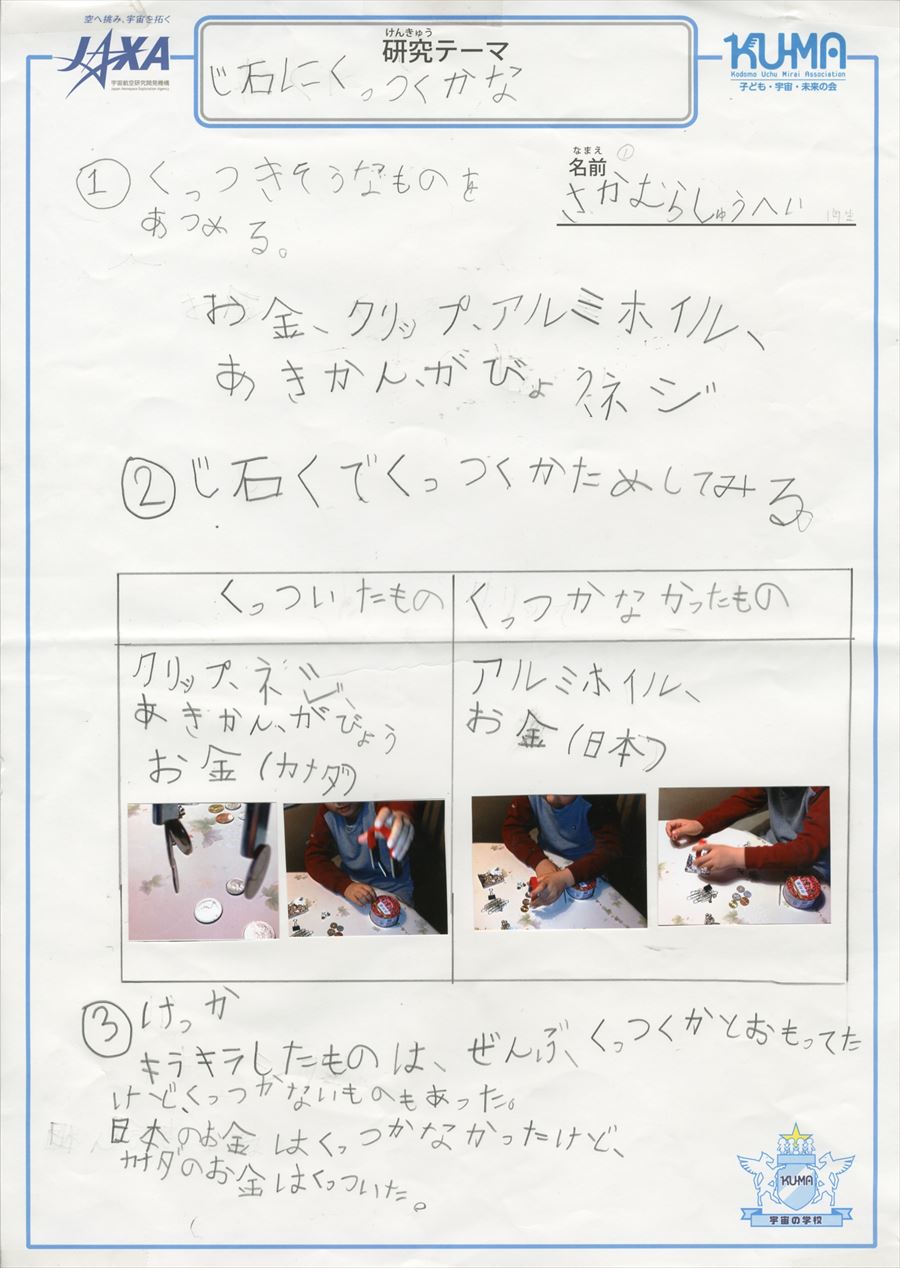 空へ挑み、宇宙を拓く
JAXA
宇宙航空研究開発機構
Japan Aerospace Exploration Agency
けんきゅう
研究テーマ
じ石にくっつくかな
KU-MA
Kodomo Uchu Mirai Association
子ども・宇宙・未来の会
なまえ
名前
①
さかむらしゅうへい
① くっつきそうなものを
あつめる。
お金、クリップ、アルミホイル、
あきかん、がびょう、ネジ
② じ石くでくっつくかためしてみる。
くっついたもの
クリップ、ネジ、
あきかん、がびょう
お金(カナダ)
くっつかなかったもの
アルミホイル、
お金(日本)
③ けっか
キラキラしたものは、ぜんぶ、くっつくかとおもってた
けど、くっつかないものもあった。
日本のお金はくっつかなかったけど、
カナダのお金はくっついた。
KU-MA
宇宙の学校